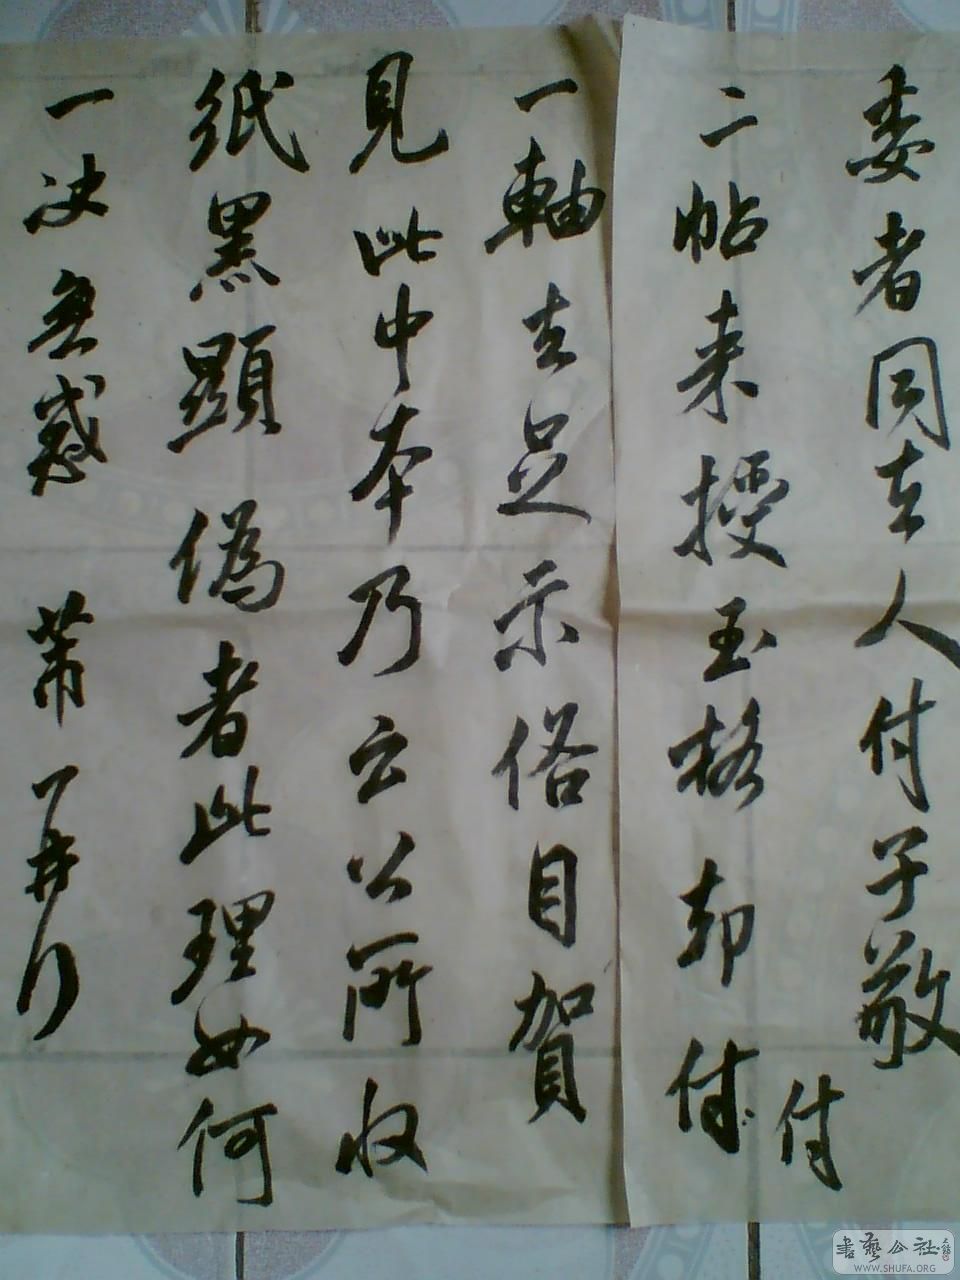 委者同去人付子敬
付
二帖来授玉格却付
一軸去足示俗目賀
見此中本乃云公所收
紙黑顯偽者此理如何
一决無惑 芾 再行
書藝公社
WWW.SHUFA.ORG